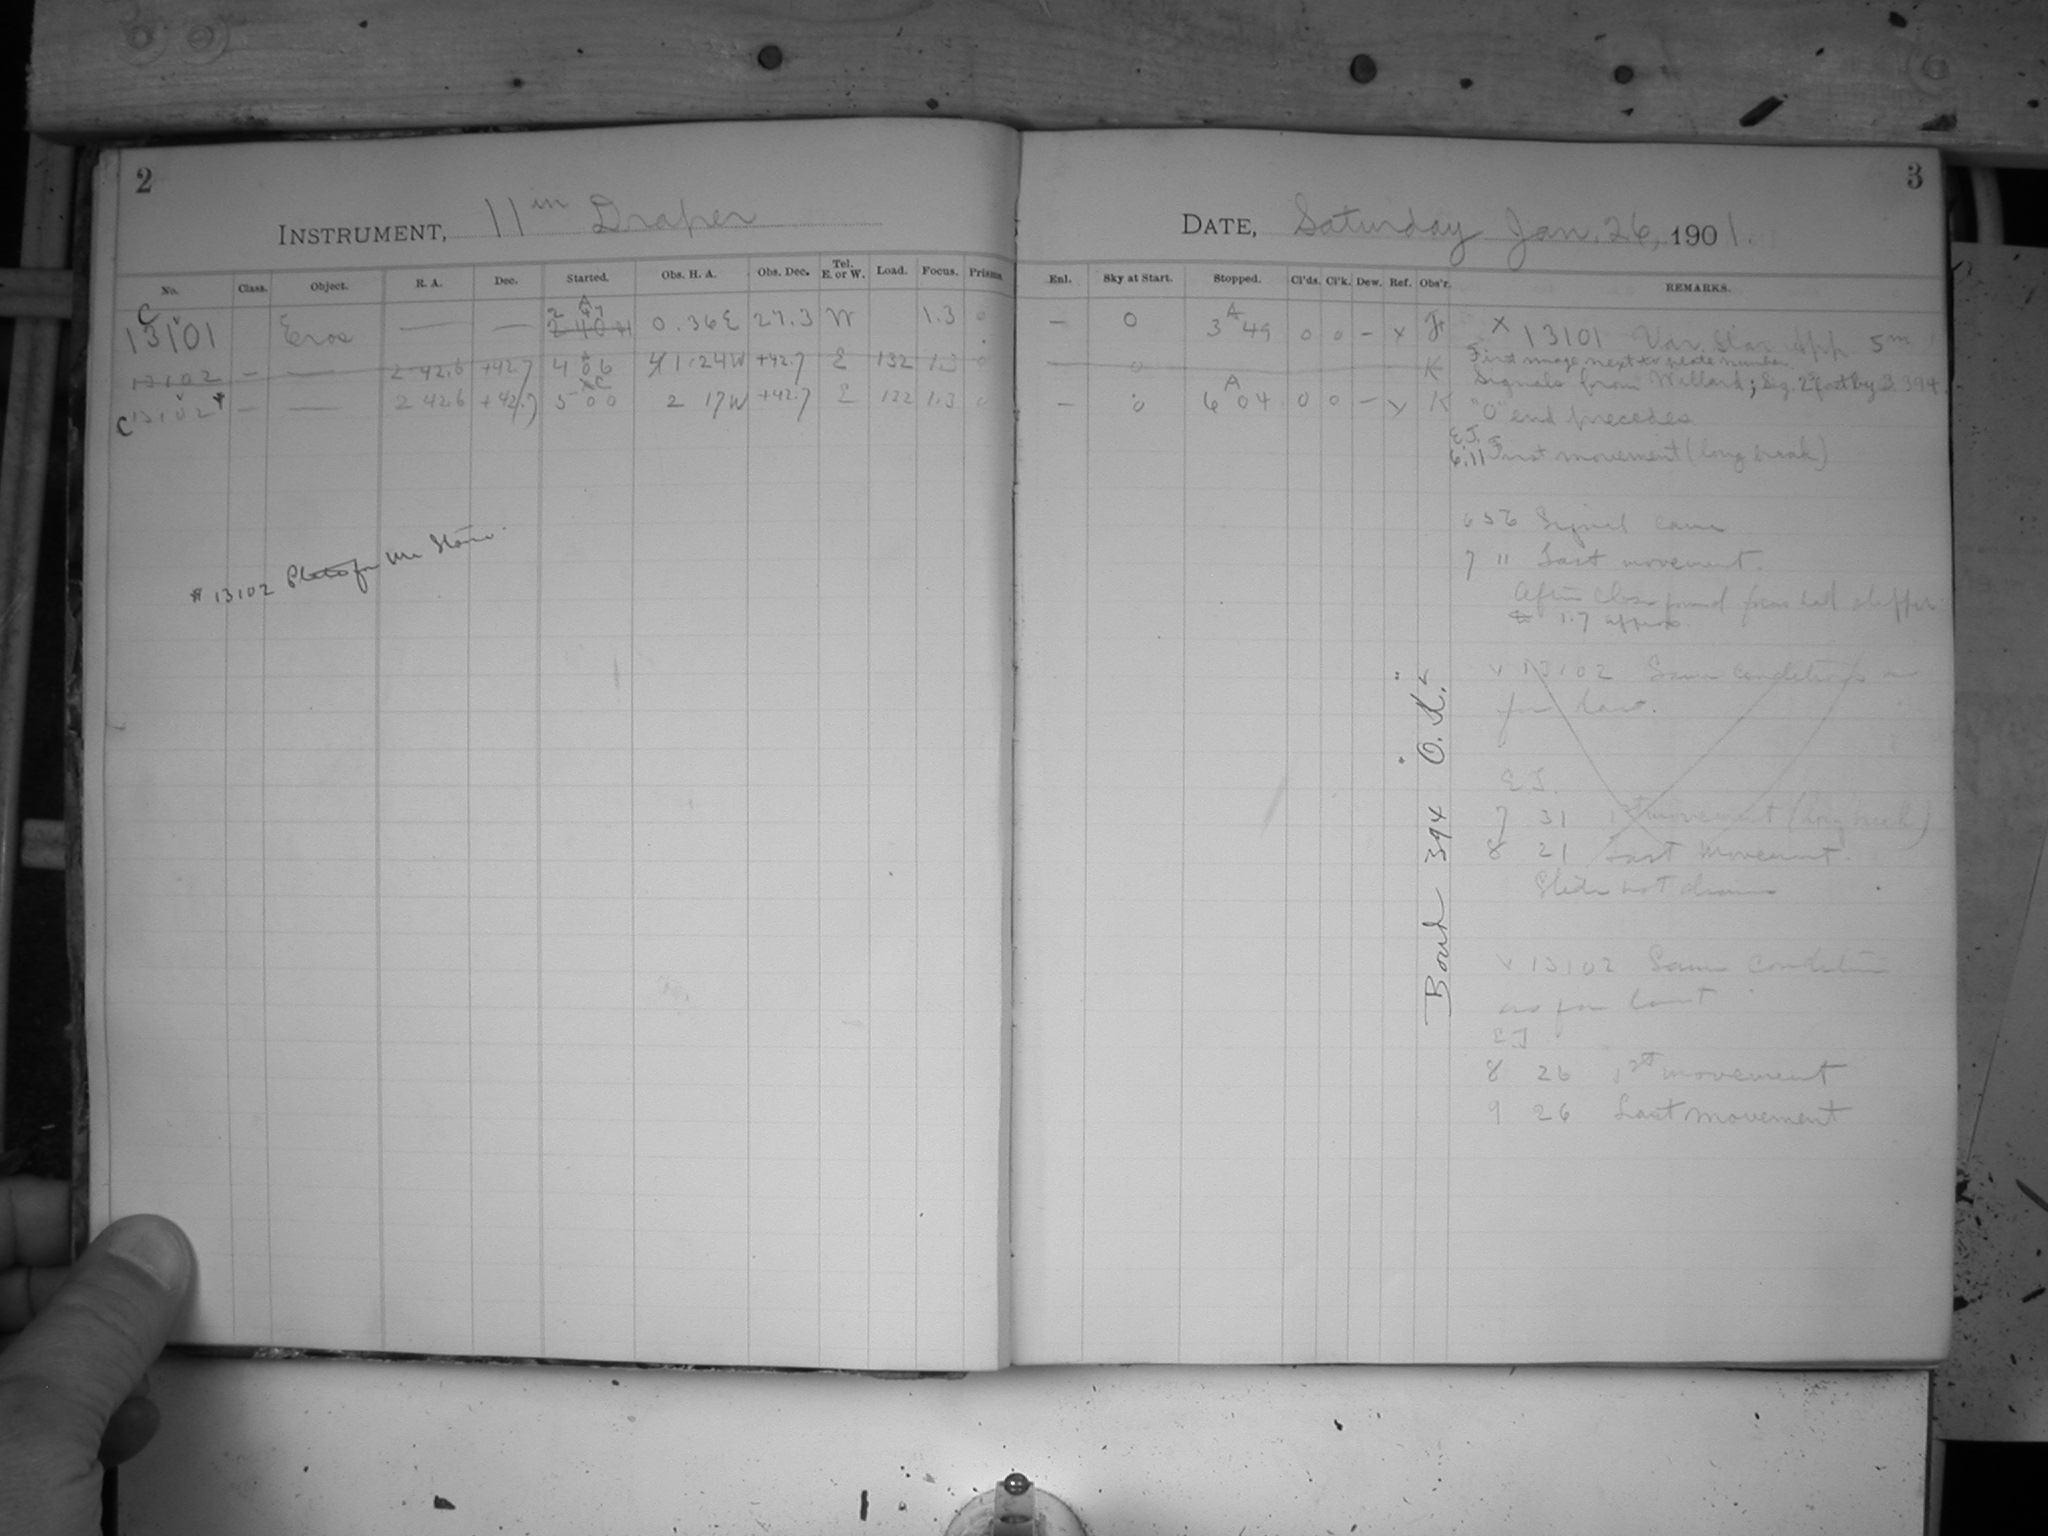 2
INSTRUMENT, 11 in Draper
No. Class. Object. R. A. Dec. Started. Obs. H. A. Obs. Dec. Tel. E. or W. Load. Focus. Prisms
C 13101 Eros — — 2 47 A 0.36E 27.3 W 1.3 0
13102 — — 2 42.6 +42.7 4 06 1.24W +42.7 E 132 1.3 0
C 13102 — — 2 42.6 +42.7 5 00 2 17W +42.7 E 132 1.3 0
# 13102 Plate for Mr
3
DATE, Saturday Jan. 26, 1901.
Enl. Sky at Start. Stopped. Cl'ds. Cl'k. Dew. Ref. Obs'r. REMARKS.
— 0 3 A 49 0 0 – x X 13101 Var. Star App 5m
First image next to plate number
— 0 K Signals from Willard; Sig. 2
— 0 6 A 04 0 0 – K "O" end precedes
E.J.
6.11 First movement (long break)
6 56 Signal came
7 11 Last movement.
After close found focus had
1.7 approx.
13102 Same conditions as
for last.
E J.
7 31 1st movement (long break)
8 21 Last movement
Slide not drawn
13102 Same condition
as for last
E J
8 26 1st movement
9 26 Last movement
Bond 394 "O. K."